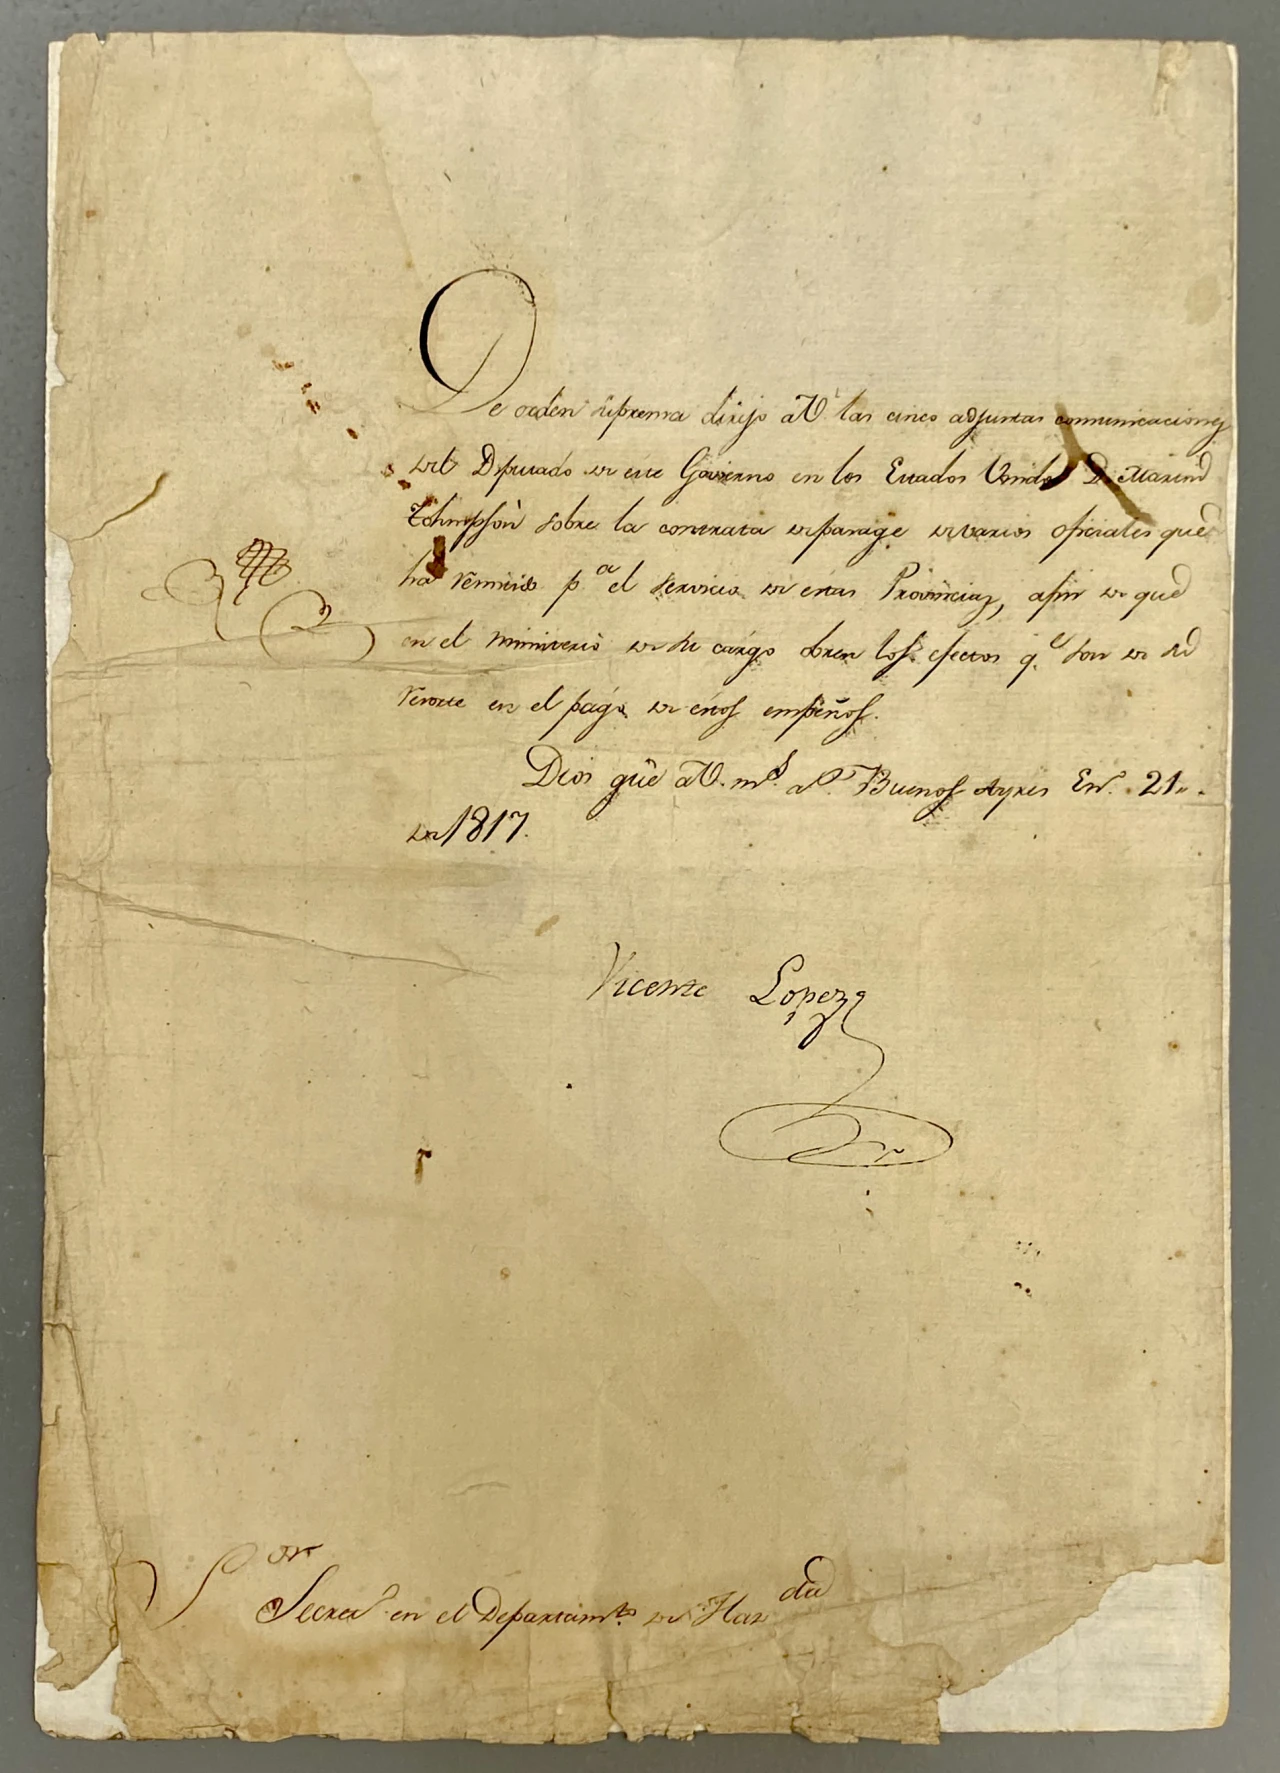 De orden suprema dirijo a V. las cinco adjuntas comunicaciones
del Diputado de este Govierno en los Estados Unidos D. Martin
Tohmpson sobre la contrata de pasage de varios oficiales que
ha remitido p.a el servicio de estas Provincias, afin de que
en el ministerio de su cargo obren los efectos q.e son de su
resorte en el pago de estos empeños.
Dios gûe a V. m.s a.s Buenos Ayres En.o 21
de 1817.
Vicente Lopez
S.or
Secret.o en el Departam.to de Haz.da